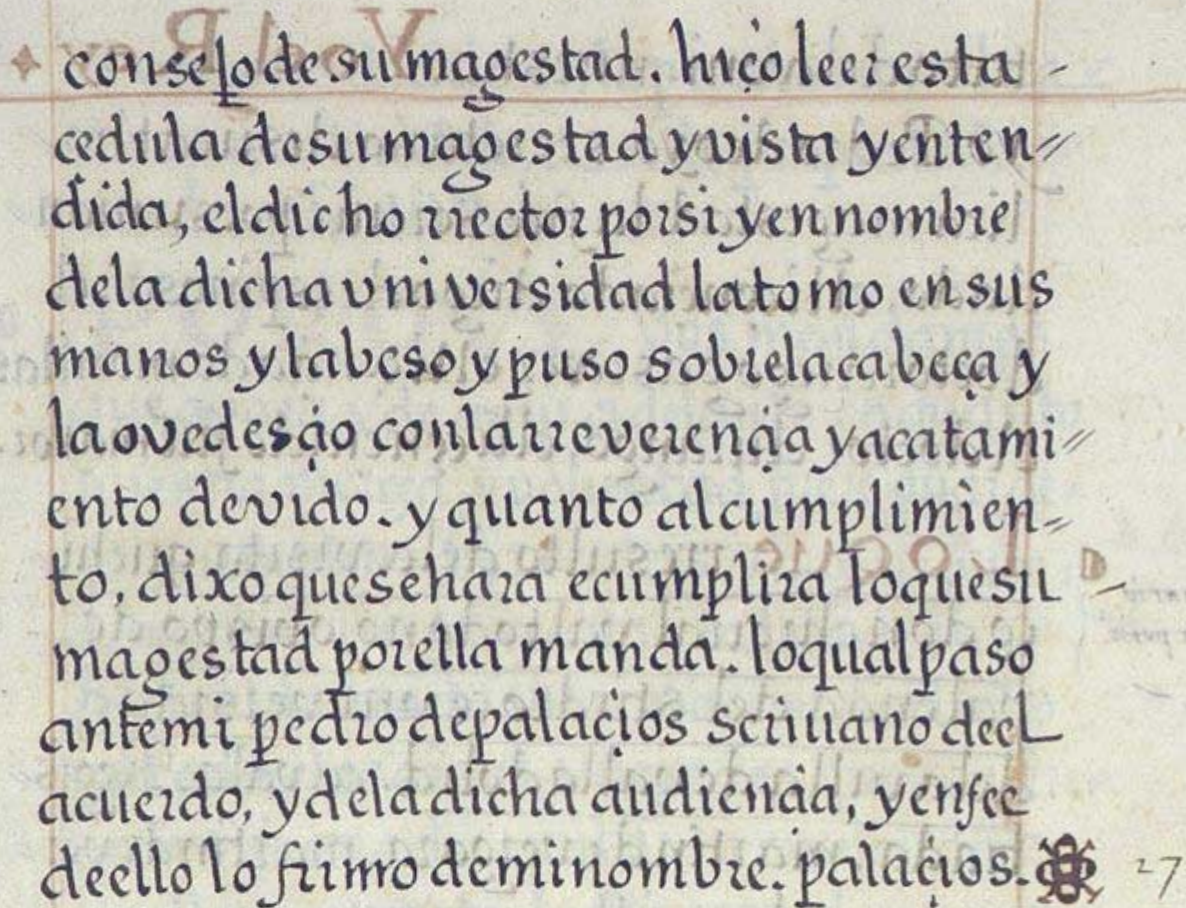 consejo de su magestad. hiço leer esta -
cedula de su magestad y vista y enten=
dida, el dicho rrector por si y en nombre
de la dicha vniversidad la tomo en sus
manos y la beso y puso sobre la cabeça y
la ovedesçio con la rreverençia y acatami=
ento devido. y quanto al cumplimien=
to, dixo que se hara e cumplira lo que su -
magestad por ella manda. lo qual paso
antemi pedro de palaçios scriuano de el
acuerdo, y de la dicha audiençia, y en fee
de ello lo firmo de mi nombre. palaçios. 27